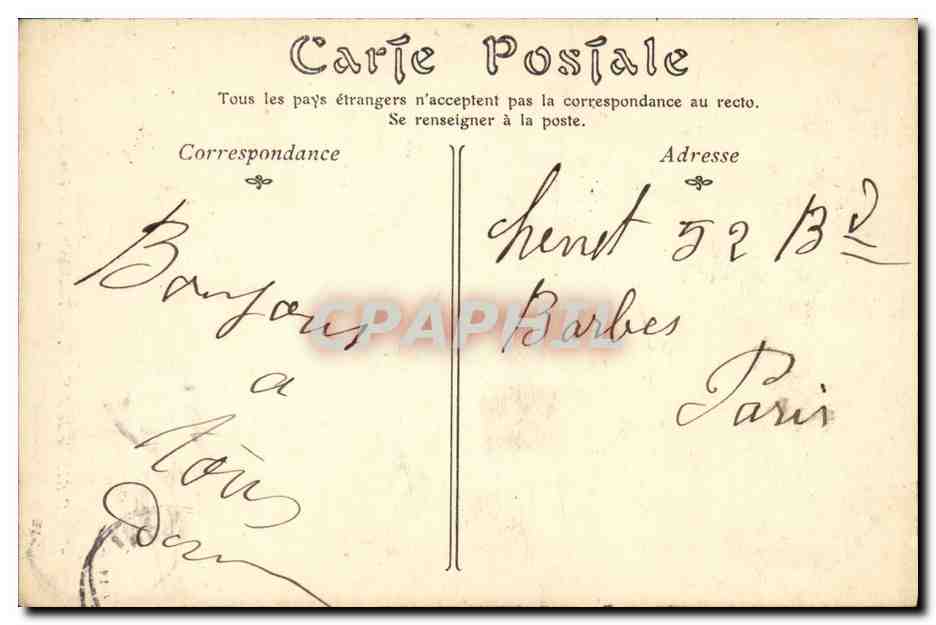 Carte Postale
Tous les pays étrangers n'acceptent pas la correspondance au recto.
Se renseigner à la poste.
Correspondance
Bonjour
a
tous
Adresse
chenet 52 Bd
Barbes
Paris
CPAPHIL